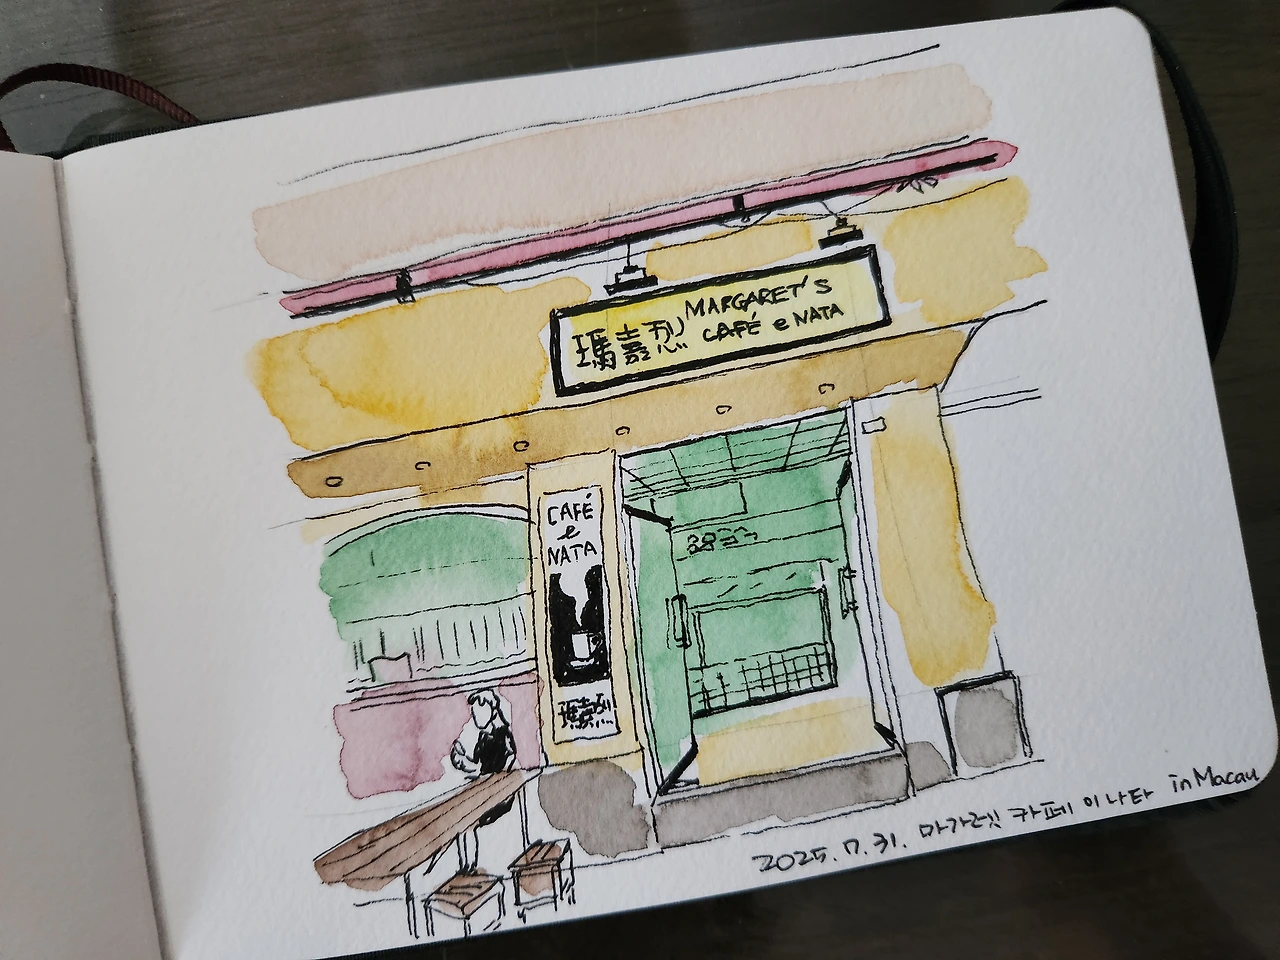 瑪嘉烈
MARGARET'S
CAFÉ e NATA
CAFÉ
e
NATA
瑪嘉烈
2025.7.31. 마가렛 카페 이 나타 in Macau